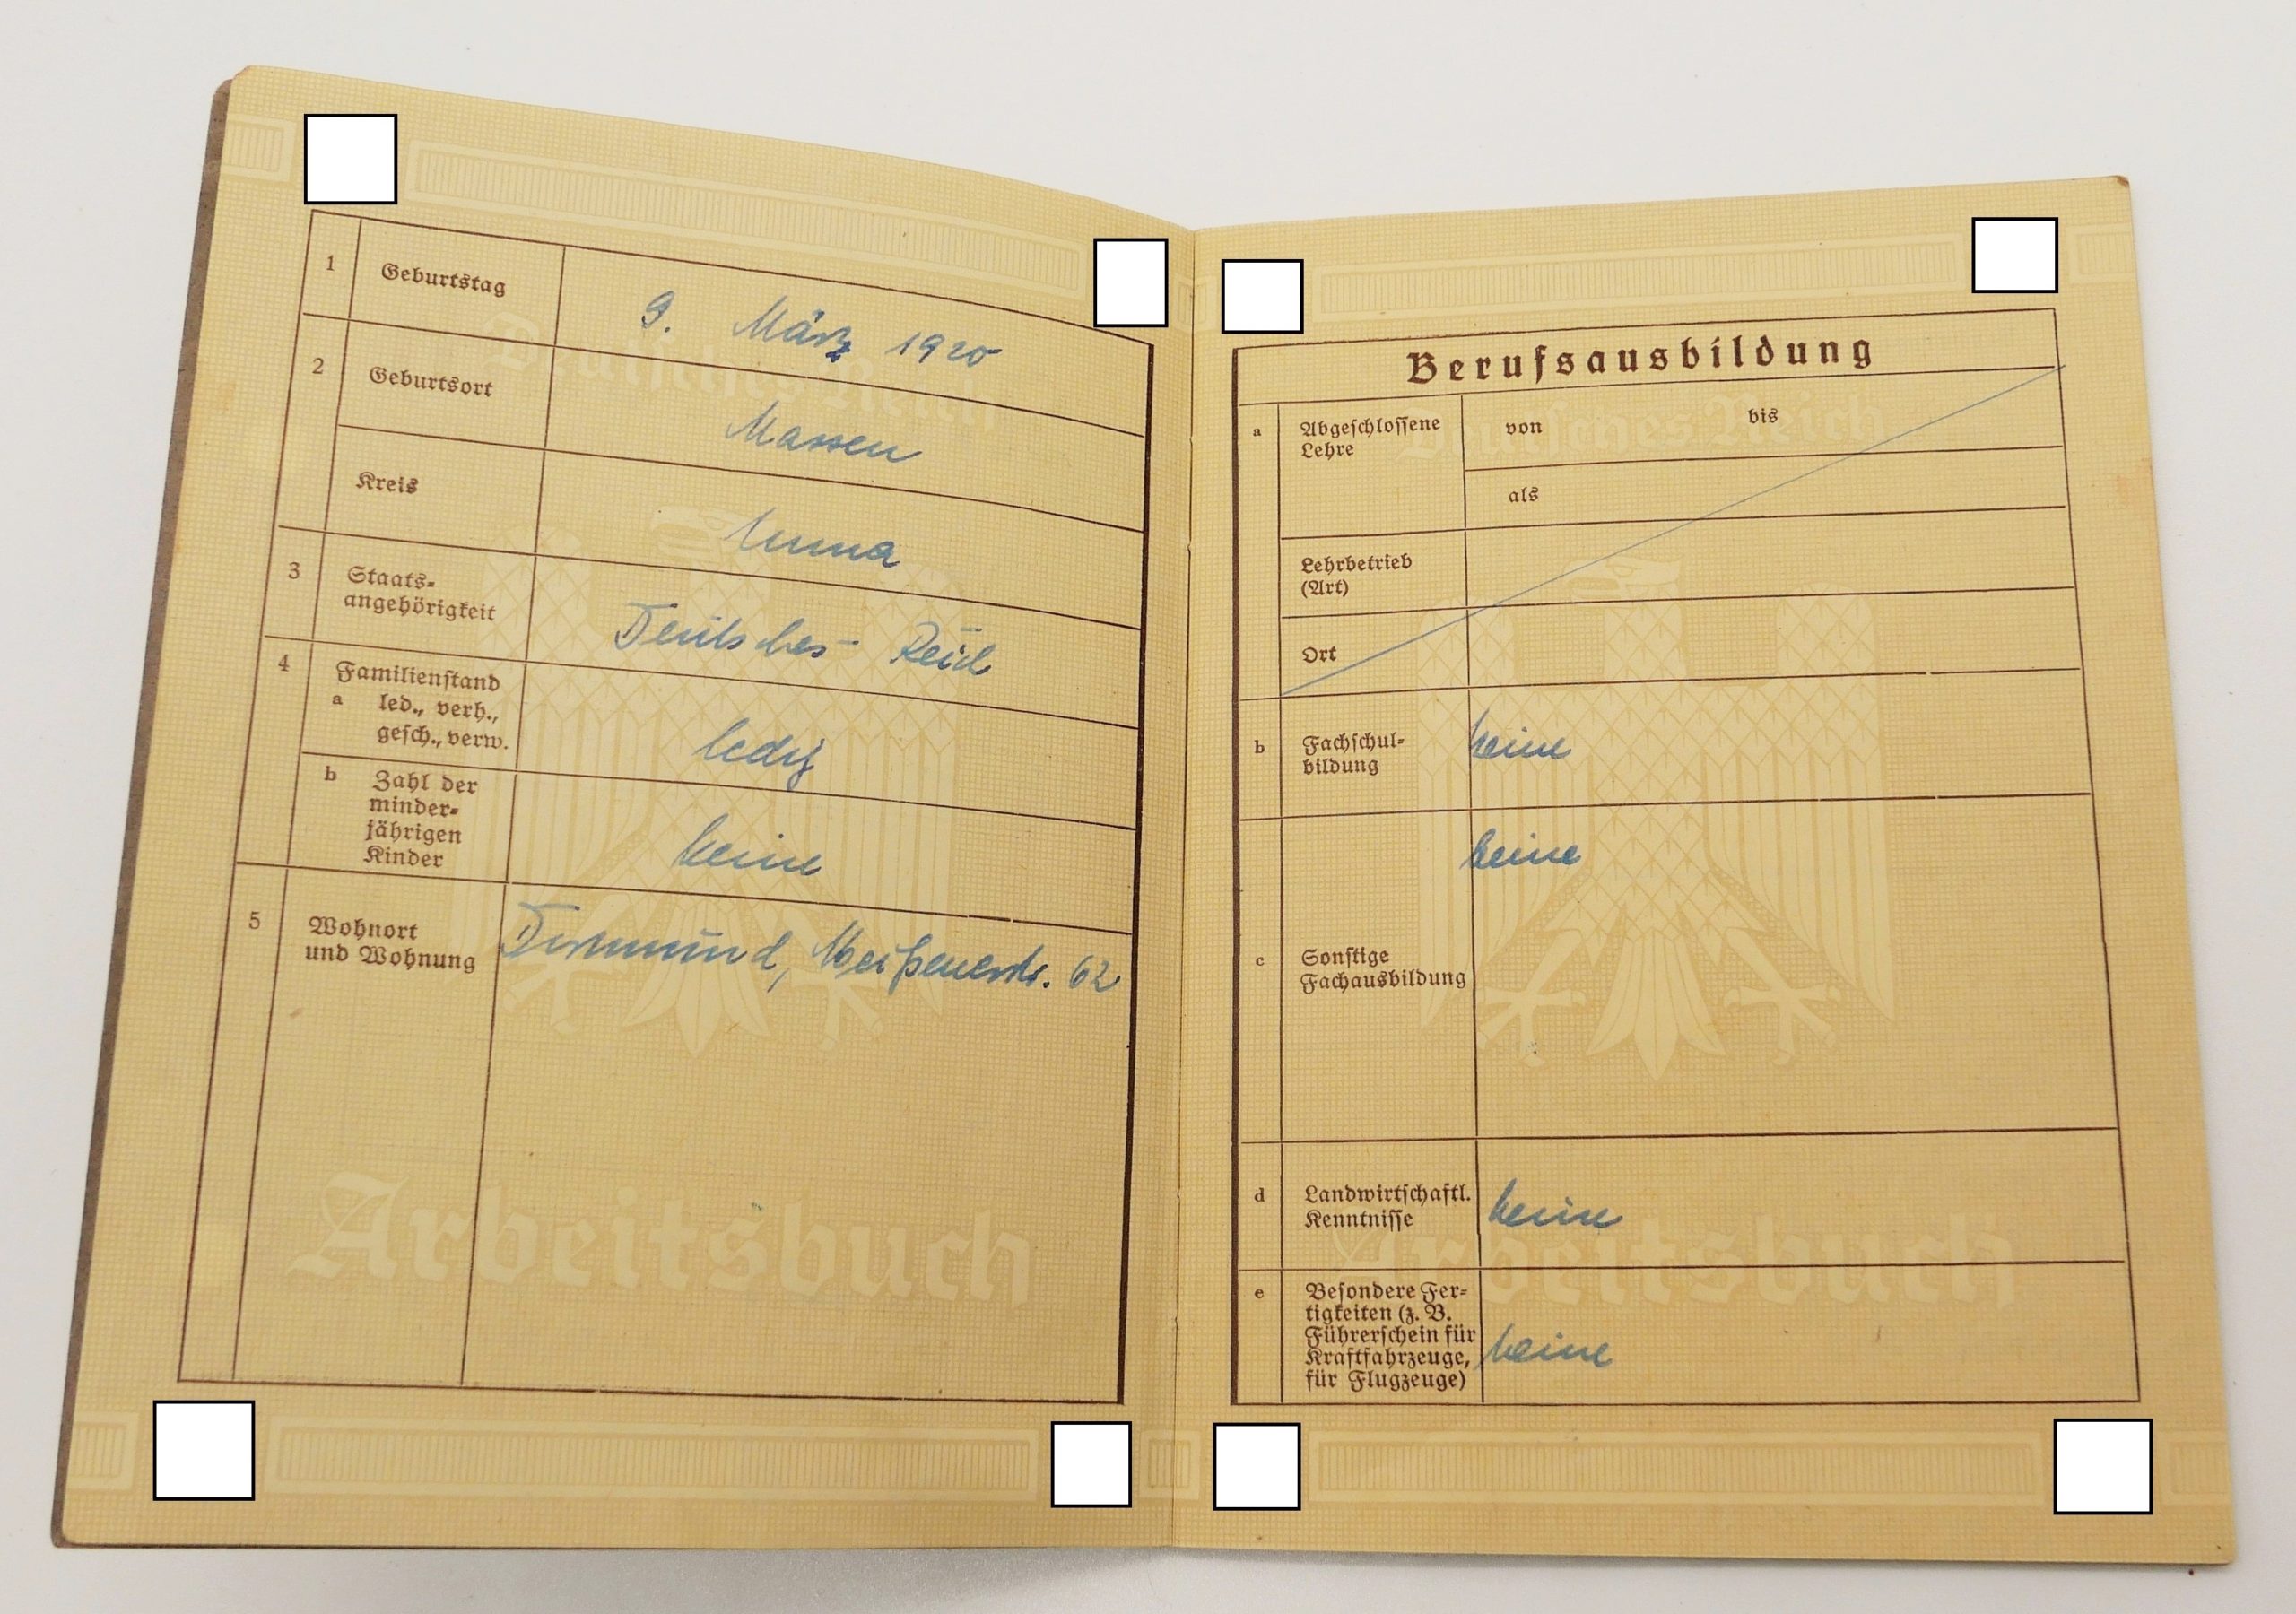 1 Geburtstag 9. März 1920
2 Geburtsort Massen
Kreis Unna
3 Staats-
angehörigkeit Deutsches Reich
4 Familienstand
a led., verh.,
gesch., verw. ledig
b Zahl der
minder-
jährigen
Kinder keine
5 Wohnort
und Wohnung Dortmund, Meißenerstr. 62
Deutsches Reich
Arbeitsbuch
Berufsausbildung
a Abgeschlossene
Lehre von bis
als
Lehrbetrieb
(Art)
Ort
b Fachschul-
bildung keine
c Sonstige
Fachausbildung keine
d Landwirtschaftl.
Kenntnisse keine
e Besondere Fer-
tigkeiten (z. B.
Führerschein für
Kraftfahrzeuge,
für Flugzeuge) keine
Deutsches Reich
Arbeitsbuch